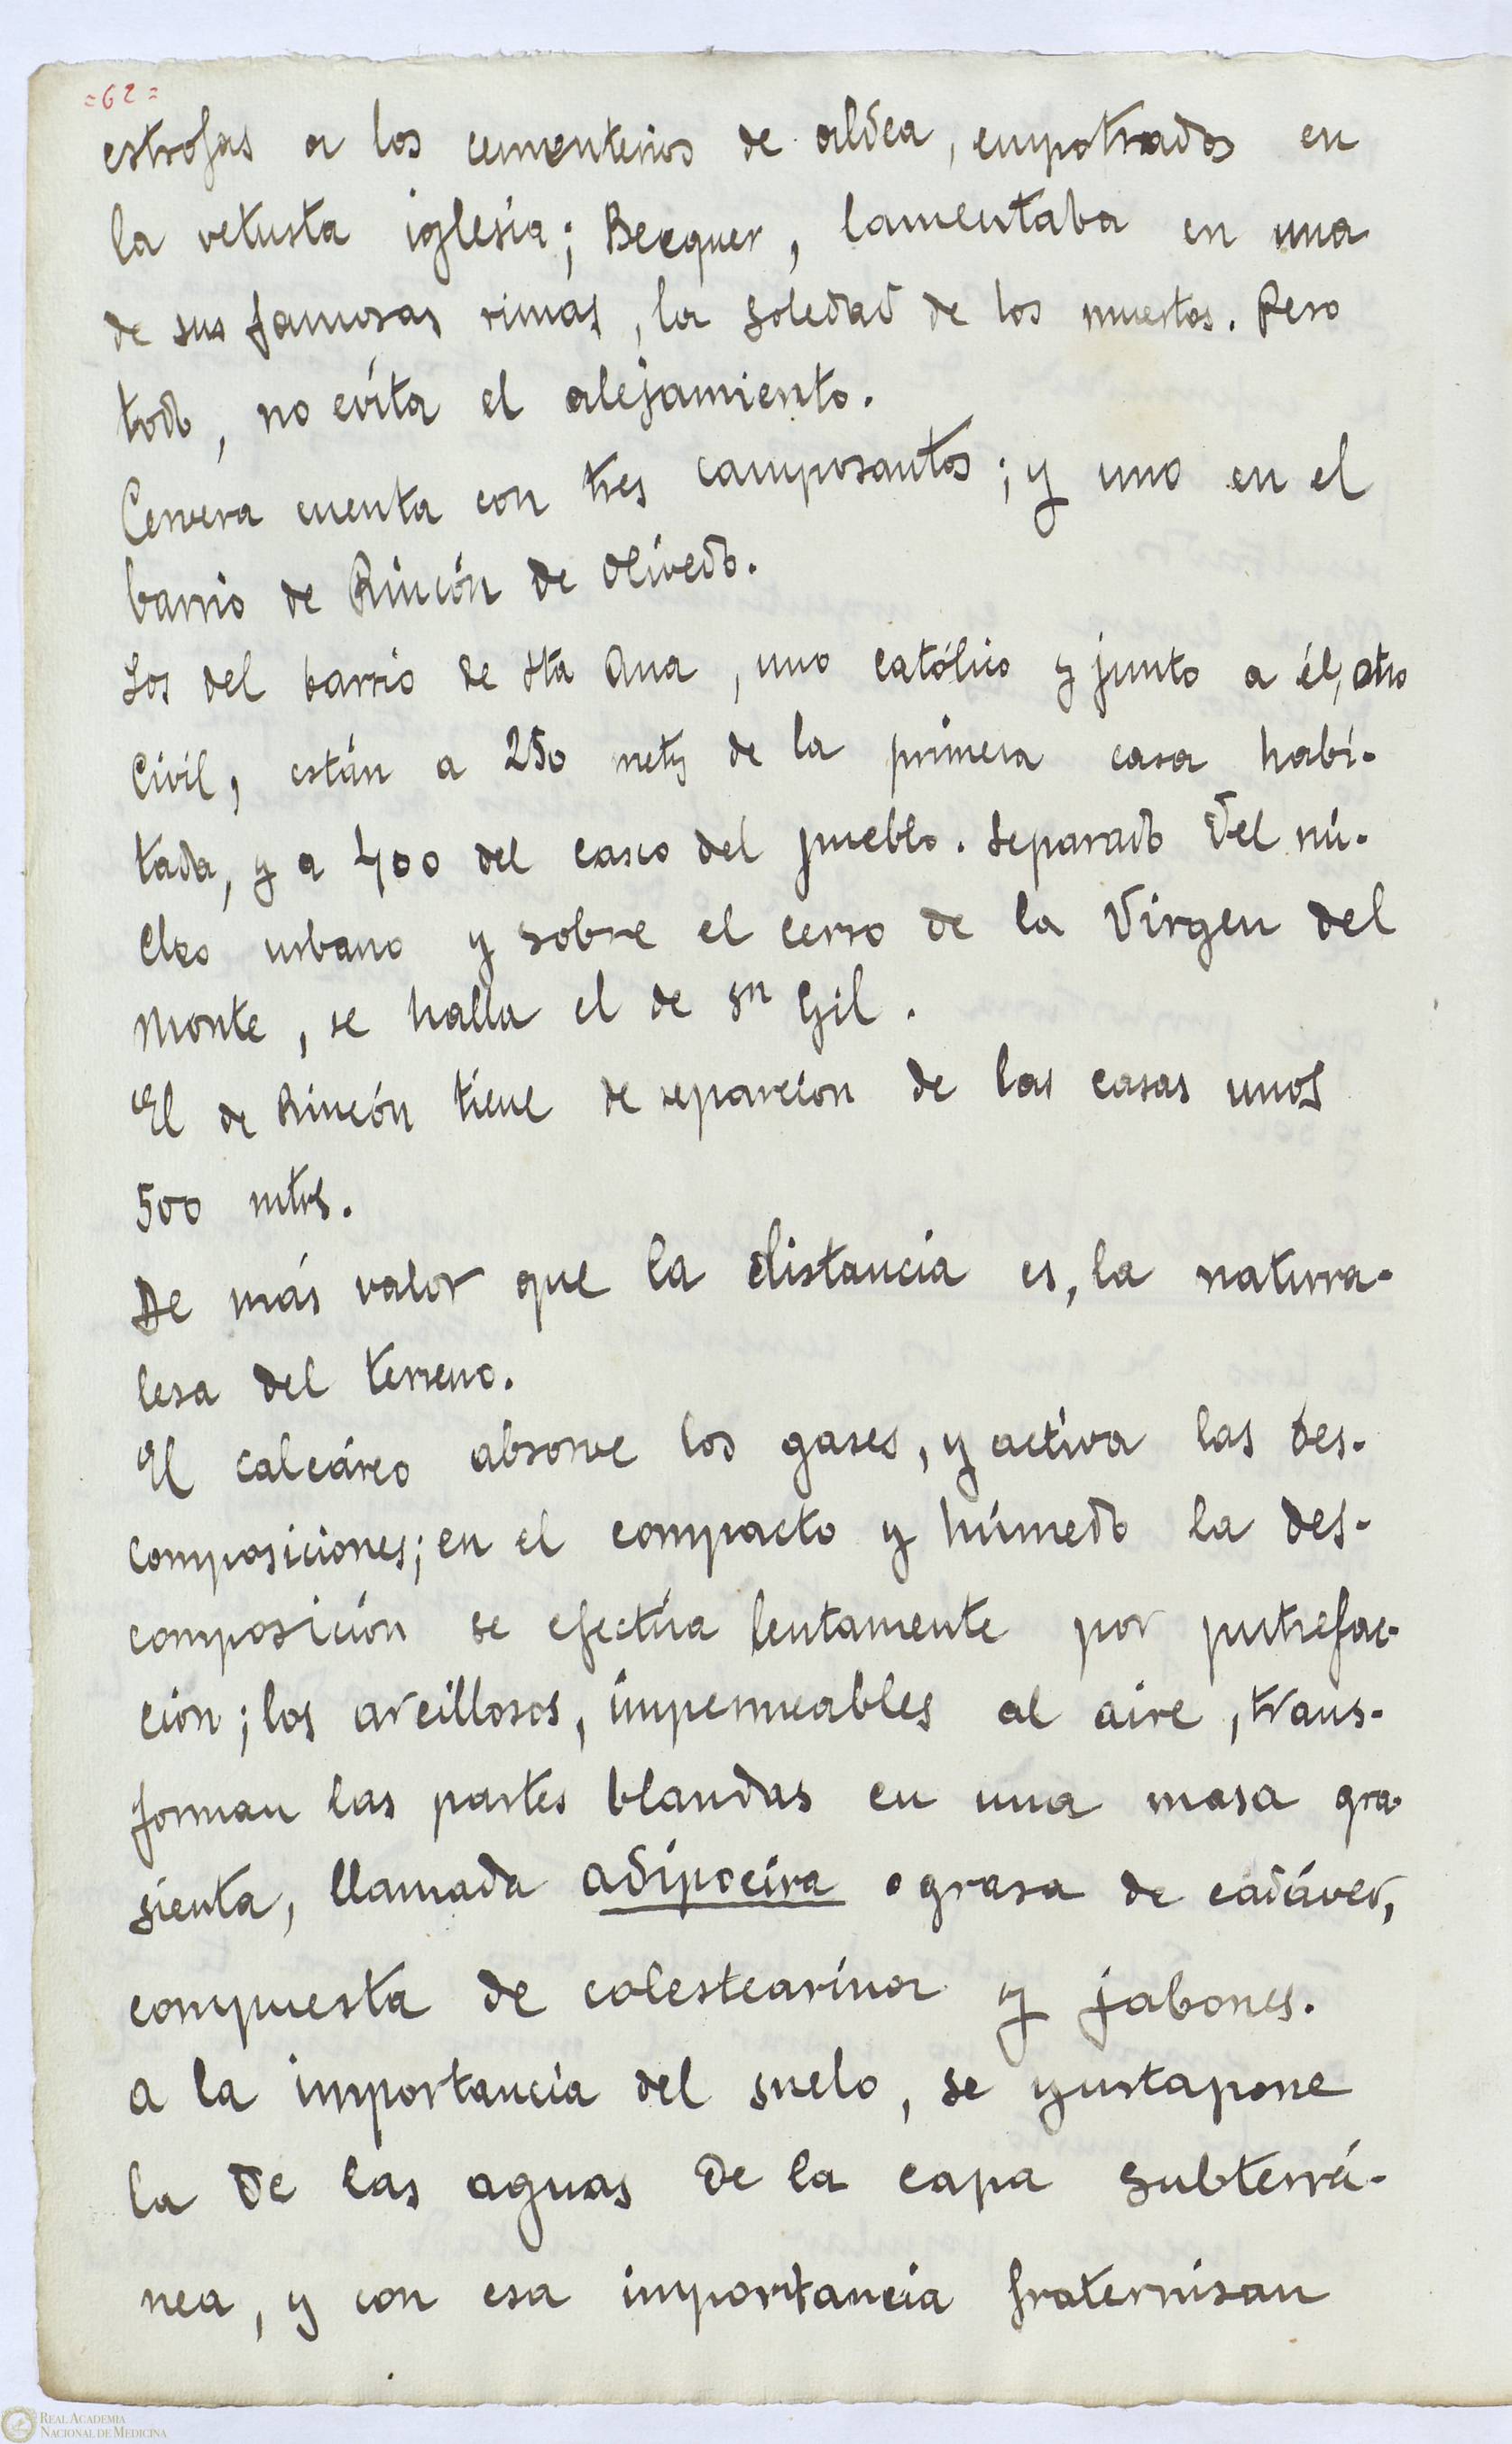 =62=
estrofas a los cementerios de aldea, empotrados en
la vetusta iglesia; Becquer, lamentaba en una
de sus famosas rimas, la soledad de los muertos. Pero
todo, no evita el alejamiento.
Cervera cuenta con tres camposantos; y uno en el
barrio de Rincón de Olivedo.
Los del barrio de Sta Ana, uno católico y junto a él, otro
civil, están a 250 mets de la primera casa habi-
tada, y a 400 del casco del pueblo. Separado del nú-
cleo urbano y sobre el cerro de la Virgen del
Monte, se halla el de Sn Gil.
El de Rincón tiene de separcion de las casas unos
500 mtrs.
De más valor que la distancia es, la natura-
lesa del terreno.
El calcáreo absorve los gases, y activa las des-
composiciones; en el compacto y húmedo la des-
composición se efectúa lentamente por putrefac-
ción; los arcillosos, impermeables al aire, trans-
forman las partes blandas en una masa gra-
sienta, llamada adipocira o grasa de cadáver,
compuesta de colestearina y jabones.
A la importancia del suelo, se yustapone
la de las aguas de la capa subterrá-
nea, y con esa importancia fraternisan
REAL ACADEMIA
NACIONAL DE MEDICINA